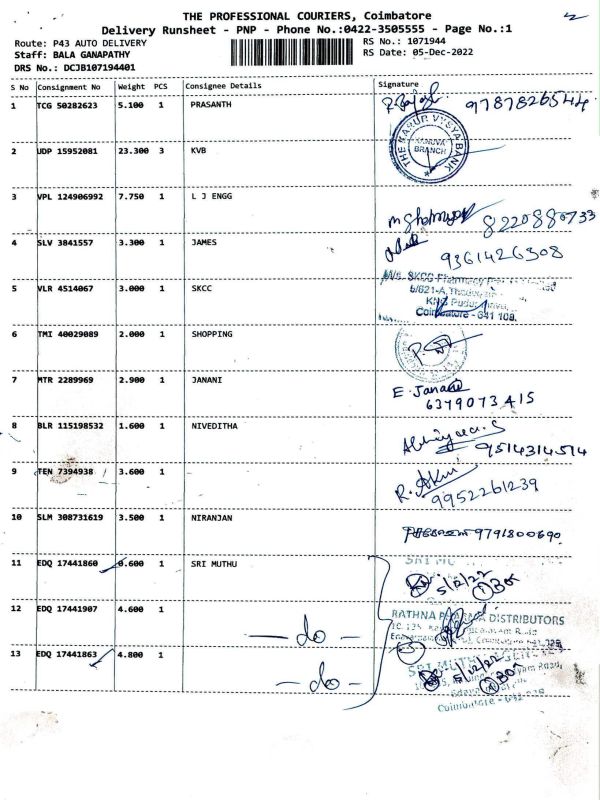 THE PROFESSIONAL COURIERS, Coimbatore
Delivery Runsheet - PNP - Phone No.:0422-3505555 - Page No.:1
Route: P43 AUTO DELIVERY
RS No.: 1071944
Staff: BALA GANAPATHY
RS Date: 05-Dec-2022
DRS No.: DCJB107194401
S No Consignment No Weight PCS Consignee Details Signature
1 TCG 50282623 5.100 1 PRASANTH 9787826544
THE KARUR VYSYA BANK
BRANCH
2 UDP 15952081 23.300 3 KVB
3 VPL 124906992 7.750 1 L J ENGG 8220880733
4 SLV 3841557 3.300 1 JAMES 9361426308
M/s. SKCC Pharmacy
5 VLR 4514067 3.000 1 SKCC 6/621-A,
Coimbatore - 641 108.
6 TMI 40029089 2.000 1 SHOPPING
7 MTR 2289969 2.900 1 JANANI E. Janani
6379073415
8 BLR 115198532 1.600 1 NIVEDITHA 9514314514
9 TEN 7394938 3.600 1
9952261239
10 SLM 308731619 3.500 1 NIRANJAN 9791800690
11 EDQ 17441860 0.600 1 SRI MUTHU
5/12/22
12 EDQ 17441907 4.600 1 RATHNA DISTRIBUTORS
- do -
13 EDQ 17441863 4.800 1 SRI MUTH
5/12/22
- do -
Coimbatore